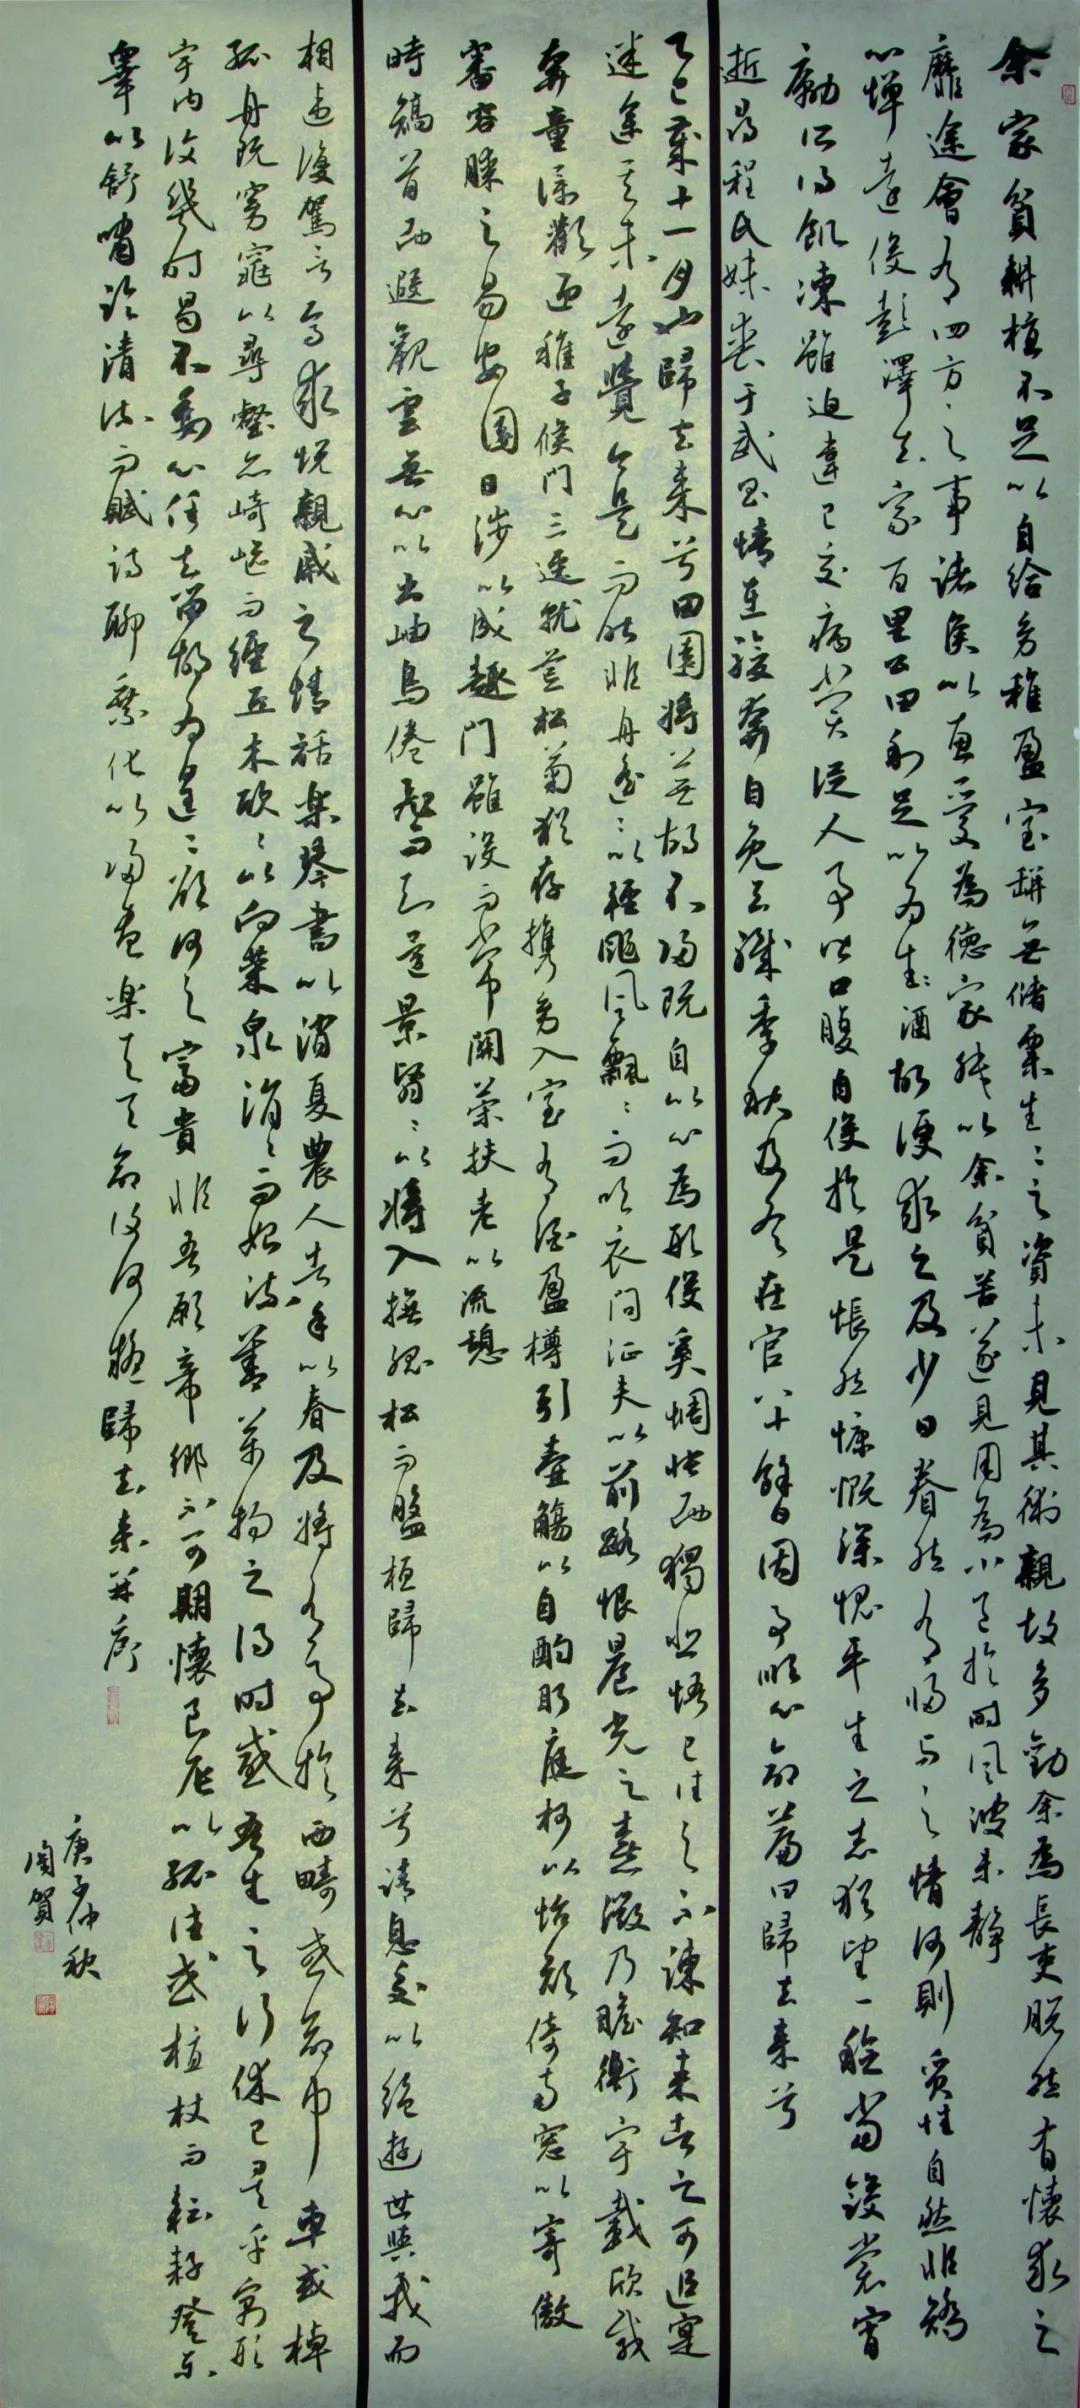 余家貧耕植不足以自給幼稚盈室缾無儲粟生々之資未見其術親故多勸余為長吏脫然有懷求之
靡途會有四方之事諸侯以惠愛為德家叔以余貧苦遂見用為小邑於時風波未靜
心憚遠役彭澤去家百里公田利足以為生々酒故便求之及少日眷然有歸與之情何則質性自然非矯
勵所得飢凍雖迫違己交病嘗從人事皆口腹自役於是悵然慷慨深愧平生之志猶望一稔當斂裳宵
逝尋程氏妹喪于武昌情在駿奔自免去職季秋及冬在官八十餘日因事順心命篇曰歸去來兮
乙巳歲十一月也歸去來兮田園將蕪胡不歸既自以心為形役奚惆悵而獨悲悟已往之不諫知來者之可追寔
迷途其未遠覺今是而昨非舟遙々以輕颺風飄々而吹衣問征夫以前路恨晨光之熹微乃瞻衡宇載欣載
奔童僕歡迎稚子候門三逕就荒松菊猶存攜幼入室有酒盈樽引壺觴以自酌眄庭柯以怡顏倚南窗以寄傲
審容膝之易安園日涉以成趣門雖設而常關策扶老以流憩
時矯首而遐觀雲無心以出岫鳥倦飛而知還景翳々以將入撫孤松而盤桓歸去來兮請息交以絕遊世與我而
相違復駕言兮焉求悅親戚之情話樂琴書以消憂農人告余以春及將有事於西疇或命巾車或棹
孤舟既窈窕以尋壑亦崎嶇而經丘木欣々以向榮泉涓々而始流善萬物之得時感吾生之行休已矣乎寓形
宇內復幾時曷不委心任去留胡為遑々欲何之富貴非吾願帝鄉不可期懷良辰以孤往或植杖而耘耔登東
皋以舒嘯臨清流而賦詩聊乘化以歸盡樂夫天命復何疑歸去來并序
庚子仲秋
賀